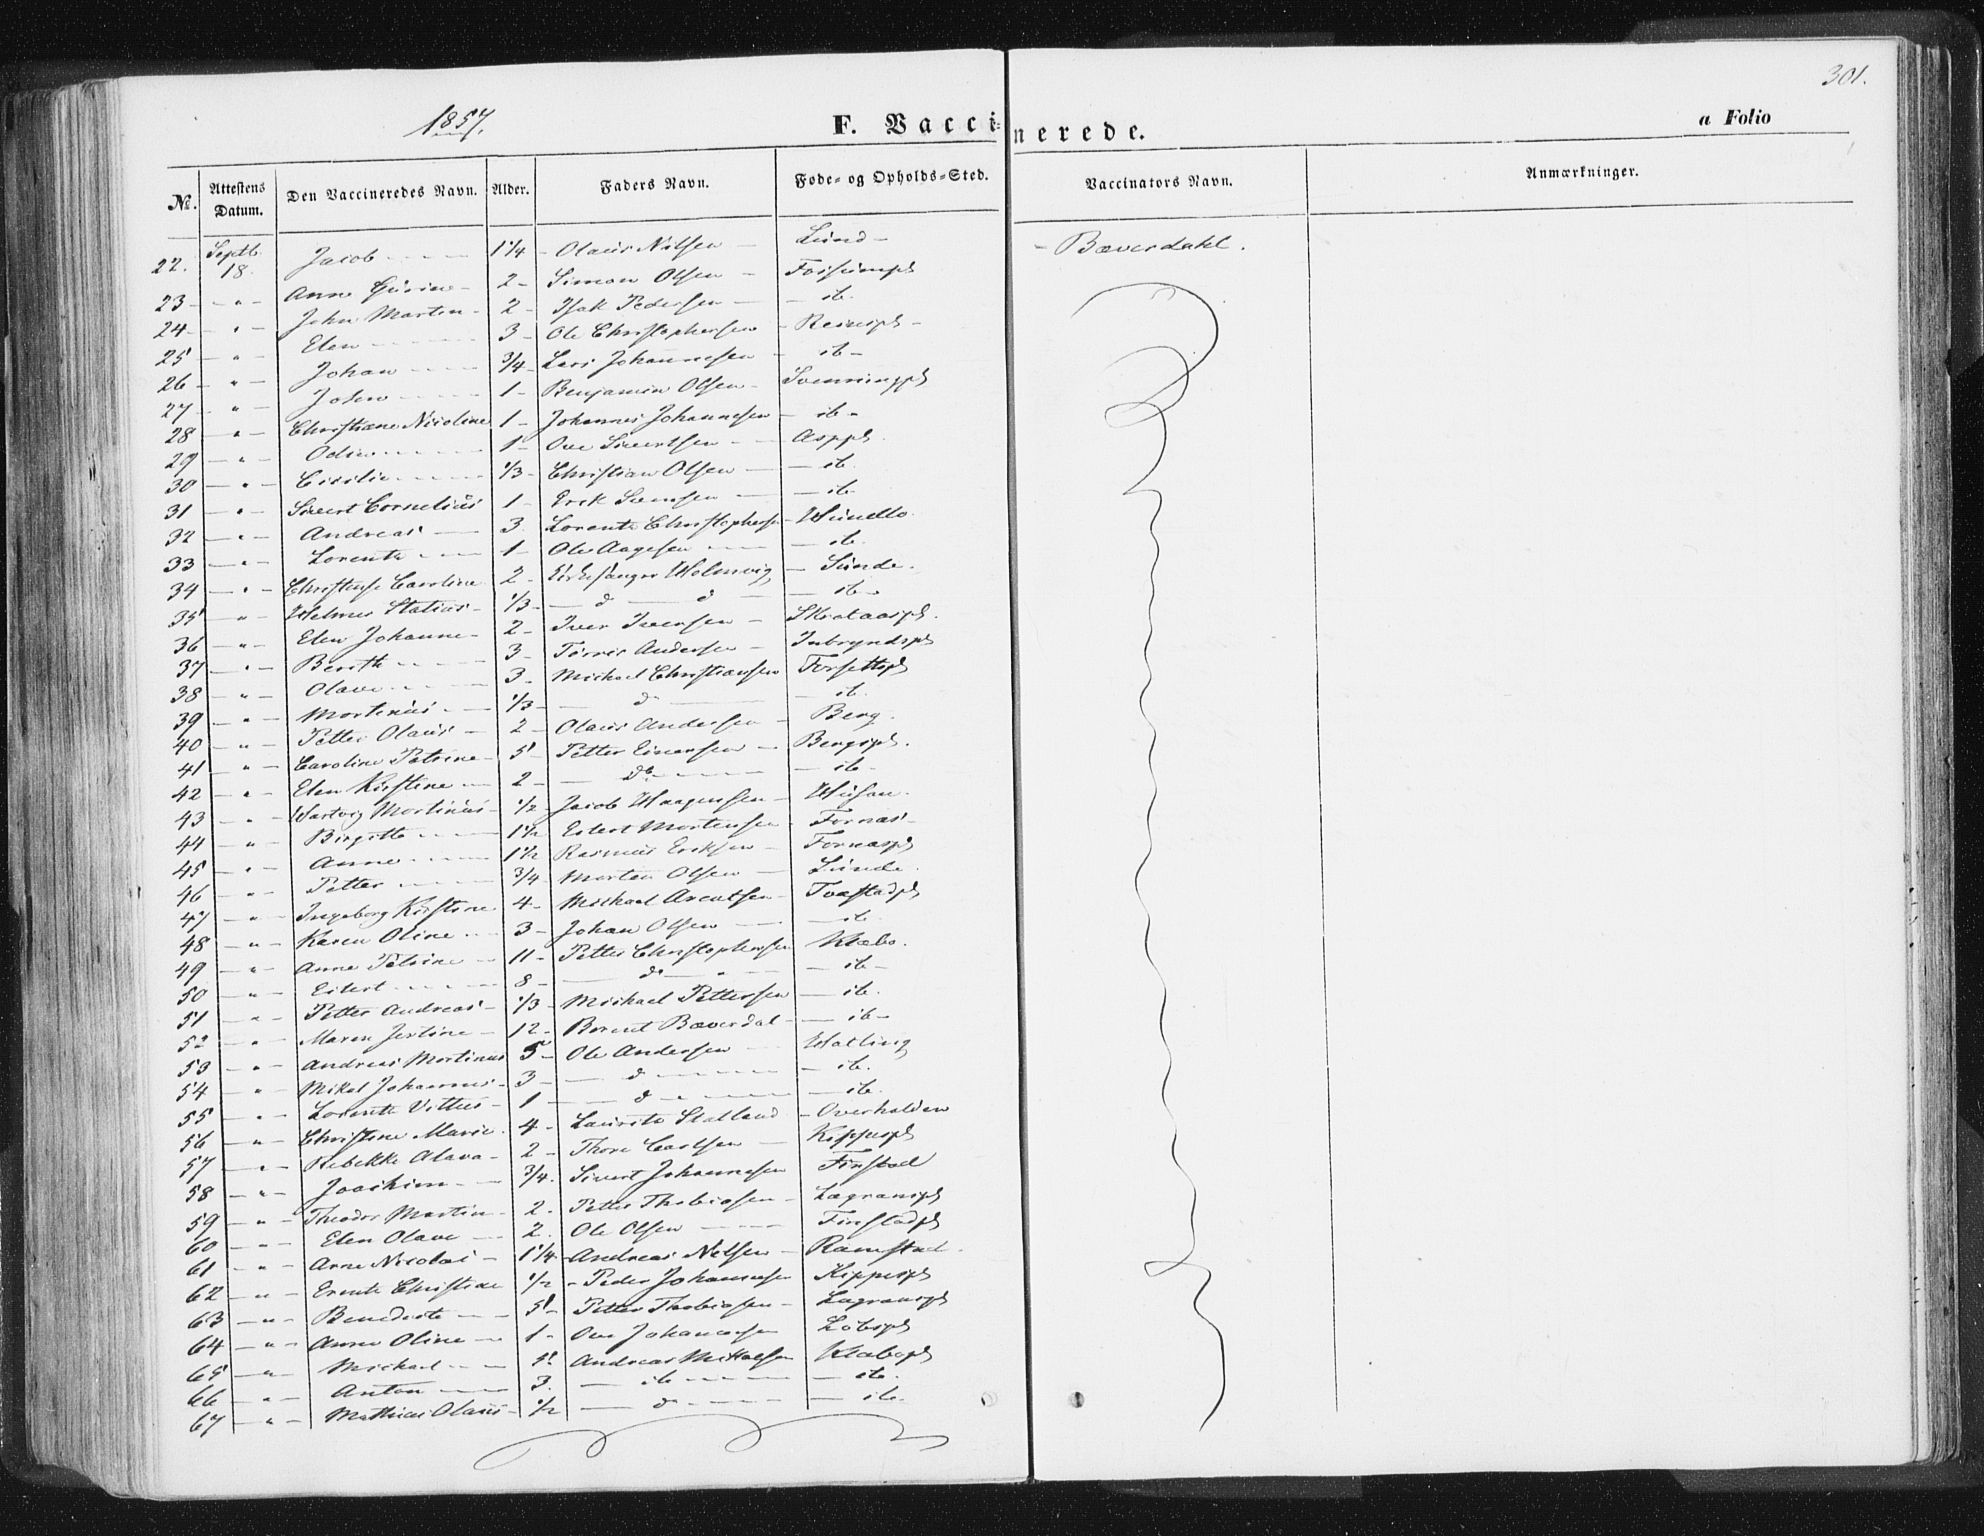 301.
1857.
F. Vaccinerede.
a Folio
No. Attestens Datum. Den Vaccineredes Navn. Alder. Faders Navn. Føde- og Opholds-Sted. Vaccinators Navn. Anmærkninger.
22. Septb. 18. Jacob 1 1/4 Olaus Nilsen Lund Bæverdahl.
23 " Anne 2 Simon Olsen Fossumpl
24 " John Marten 2 Isak Pedersen ib.
25 " Elen 3 Ole Christophersen Reinspl
26 " Johan 3/4 Lars Johannesen ib
27 " John 1 Benjamin Olsen
28 " Christiane Nicoline 1 Johannes Johannesen ib
29 " Odin 1 Ove Sivertsen Asppl.
30 " Cicilie 1/3 Christian Olsen ib.
31 " Sivert Cornelius 1 Erik ib
32 " Andreas 3 Lorents Christophersen
33 " Lorents 1 Ole Aagesen ib.
34 " Christense Caroline 2 Kirkesanger Holmvig Lunde.
35 " Helmer Statius 1/3 d d ib
36 " Elen Johanne 2 Iver Iversen
37 " Berith 3 Andersen
38 " Olave 3 Michael Christiansen
39 " Mortinus 1/3 d ib.
40 " Petter Olaus 2 Olaus Andersen Berg.
41 " Caroline Petrine 5 Petter Einersen Bergspl.
42 " Elen Kirstine 2 do ib
43 " Hartvig Mortinus 1/2 Jacob Haagensen
44 " Birgitte 1 1/2 Eilert Mortensen Fornæs
45 " Anne 1 1/2 Rasmus Eriksen Fornæspl
46 " Petter 3/4 Morten Olsen Lunde.
47 " Ingeborg Kirstine 4 Michael Arentsen
48 " Karen Oline 3 Johan Olsen ib.
49 " Anne Petrine 11 Petter Christophersen Klæbo.
50 " Eilert 8 do ib
51 " Petter Andreas 1/3 Michael Pettersen ib.
52 " Maren 12 Berent Bæverdal ib
53 " Andreas Mortinus 5 Ole Andersen Hatling
54 " Mikal Johannes 3 d ib.
55 " Lorents Vittus 1 d ib.
56 " Christine Marie 4 Laurits Statland Overhalden
57 " Rebekke Olava 2 Thore Carlsen
58 " Joachim 3/4 Sivert Johannesen Finstad
59 " Theodor Martin 2 Petter Thobiasen
60 " Elen Olave 2 Ole Olsen Finstadpl
61 " Arne Nicolai 1 1/4 Andreas Nilsen Ramstad
62 " Christine 1/2 Peder Johannesen
63 " Benedicte 5 Petter Thobiasen
64 " Anne Oline 1 Ove Johannesen
65 " Michael 5 Andreas Klæbopl
66 " Anton 3 ib ib.
67 " Mathias Olaus 1/2 d ib.